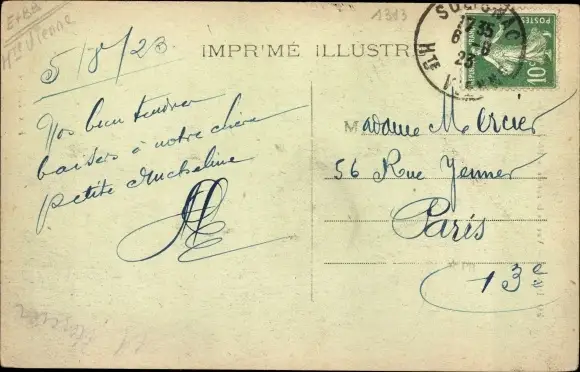 Hte Vienne
1313
5/8/23
IMPRIMÉ ILLUSTR
SOLIGNAC
17 35
6 - 8
23
Hte VIENNE
POSTES
10c
Nos bien tendres
baisers à notre chère
petite Micheline
Madame Mercier
56 Rue Jenner
Paris
13e